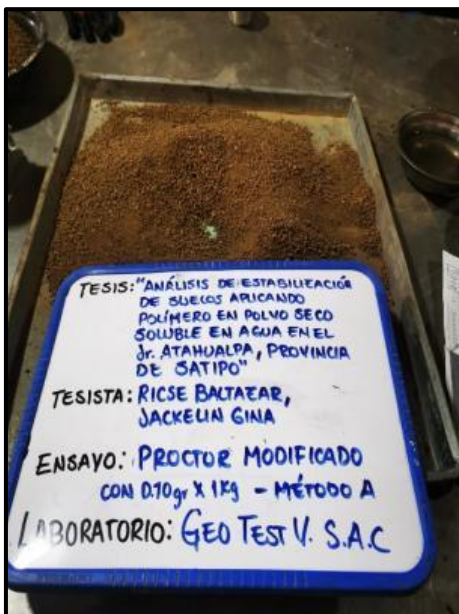 TESIS: "ANÁLISIS DE ESTABILIZACIÓN
DE SUELOS APLICANDO
POLÍMERO EN POLVO SECO
SOLUBLE EN AGUA EN EL
Jr. ATAHUALPA, PROVINCIA
DE SATIPO"
TESISTA: RICSE BALTAZAR,
JACKELIN GINA
ENSAYO: PROCTOR MODIFICADO
CON 0.70gr X 1Kg - MÉTODO A
LABORATORIO: GEO TEST V. S.A.C